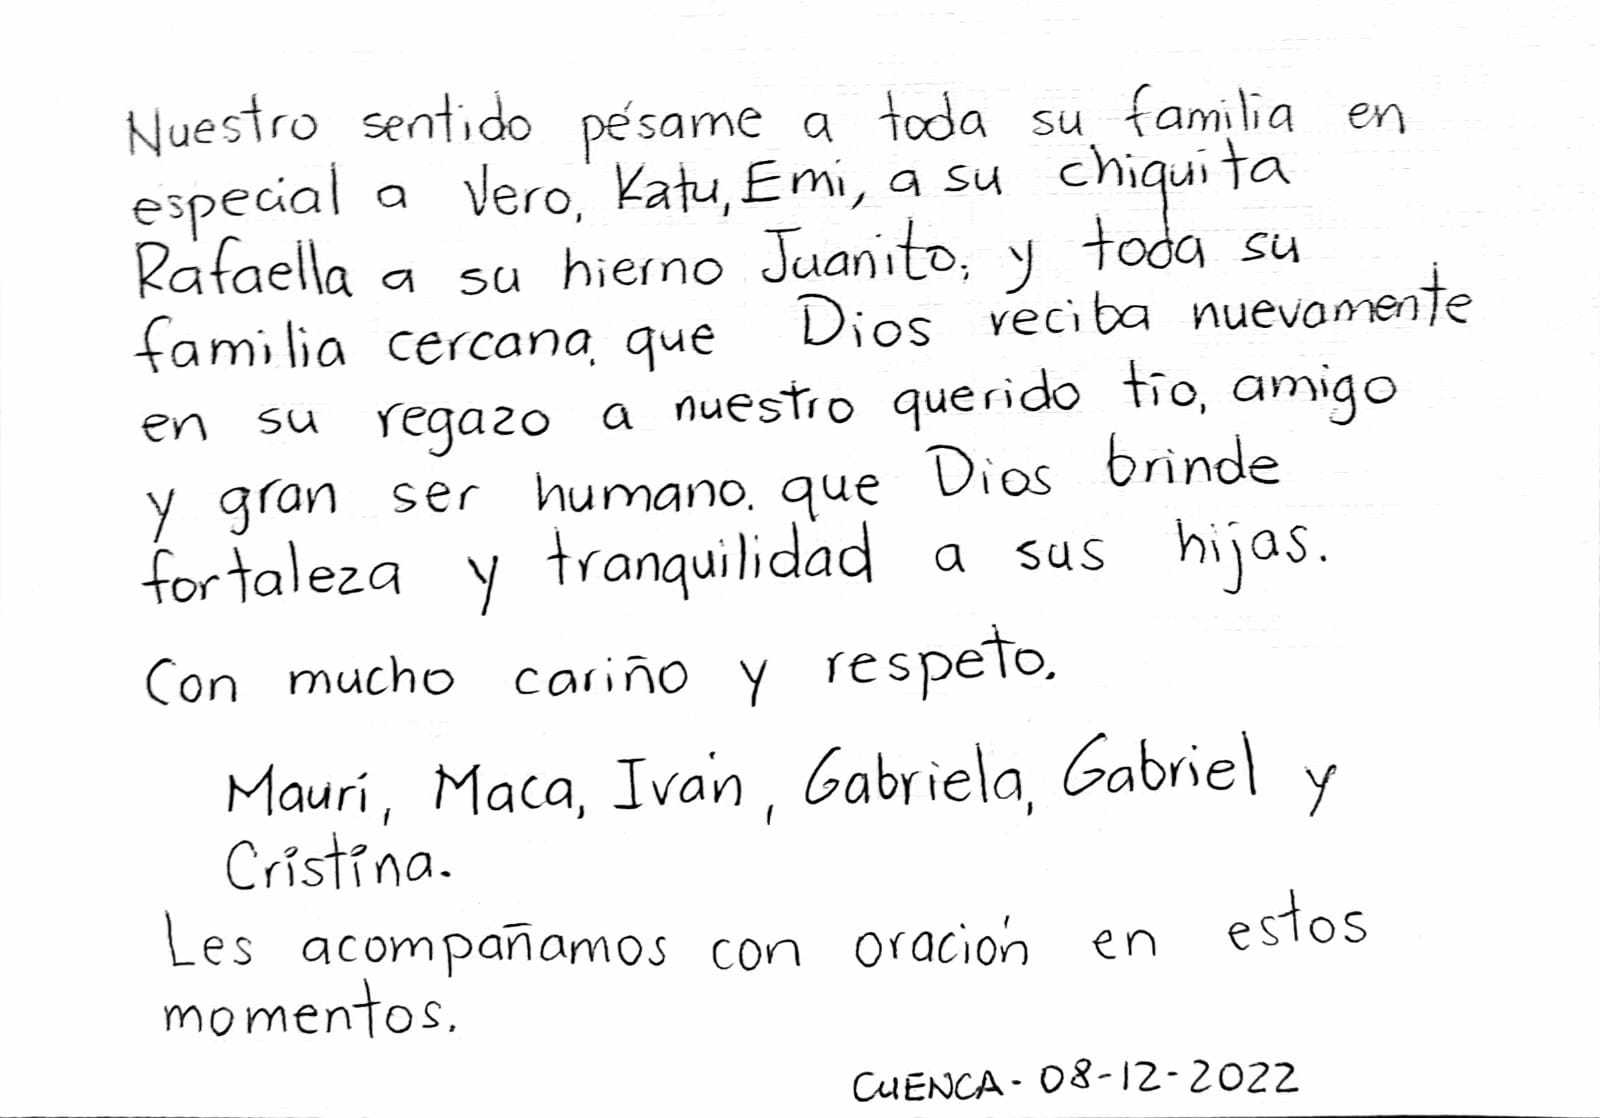 Nuestro sentido pésame a toda su familia en
especial a Vero, Katu, Emi, a su chiquita
Rafaella a su hierno Juanito, y toda su
familia cercana, que Dios reciba nuevamente
en su regazo a nuestro querido tío, amigo
y gran ser humano. que Dios brinde
fortaleza y tranquilidad a sus hijas.
Con mucho cariño y respeto.
Maurí, Maca, Iván, Gabriela, Gabriel y
Cristina.
Les acompañamos con oración en estos
momentos.
CUENCA - 08-12-2022